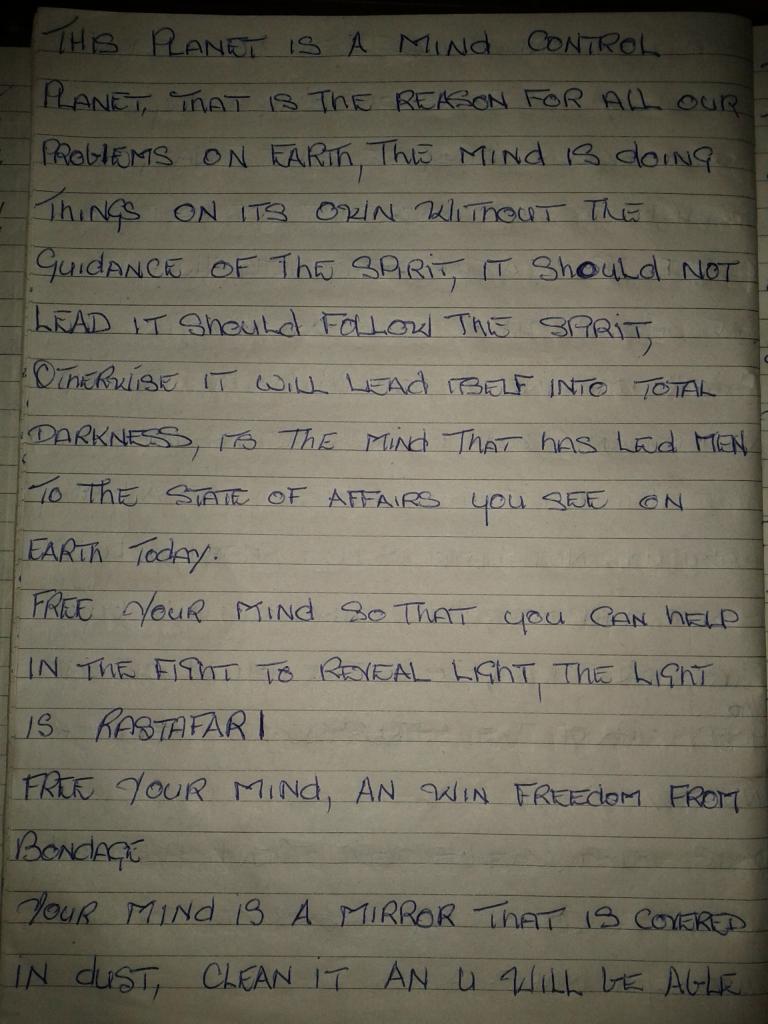 THIS PLANET IS A MINd CONTROL
PLANET, THAT IS THE REASON FOR ALL OUR
PROBLEMS ON EARTh, THE MINd IS dOING
ThINGS ON ITS OWN WITHOUT THE
GUIDANCE OF ThE SPIRIT, IT ShOULd NOT
LEAD IT ShOULd FOLLOW THE SPIRIT,
OTHERWISE IT WILL LEAd ITSELF INTO TOTAL
DARKNESS, ITS THE MINd THAT hAS LEd MEN
TO THE STATE OF AFFAIRS yOU SEE ON
EARTh TOdAy.
FREE yOUR MINd SO THAT yOU CAN hELP
IN THE FIGhT TO REVEAL LIGhT, THE LIGhT
IS RASTAFARI
FREE yOUR MINd, AN WIN FREEdOM FROM
BONDAGE
yOUR MINd IS A MIRROR THAT IS COVERED
IN dUST, CLEAN IT AN U WILL bE AbLE